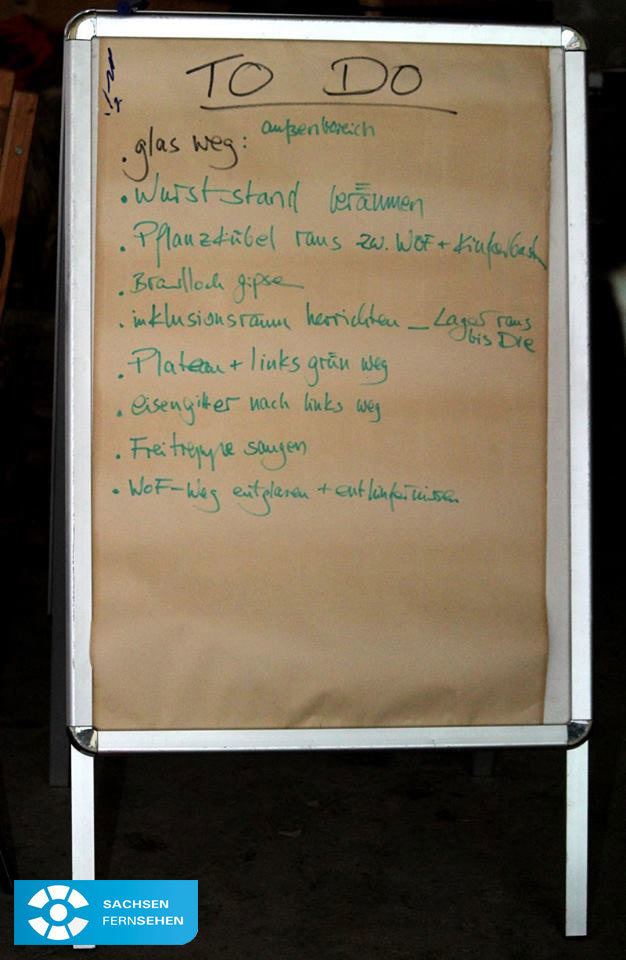 TO DO
außenbereich
• glas weg:
• Wurststand beräumen
• Pflanzkübel raus zw. WOF +
• Brandloch gipsen
• inklusionsraum herrichten – Lager raus
bis Die
• Plateau + links grün weg
• eisengitter nach links weg
• Freitreppe saugen
• WOF-Weg entglasen +
SACHSEN
FERNSEHEN